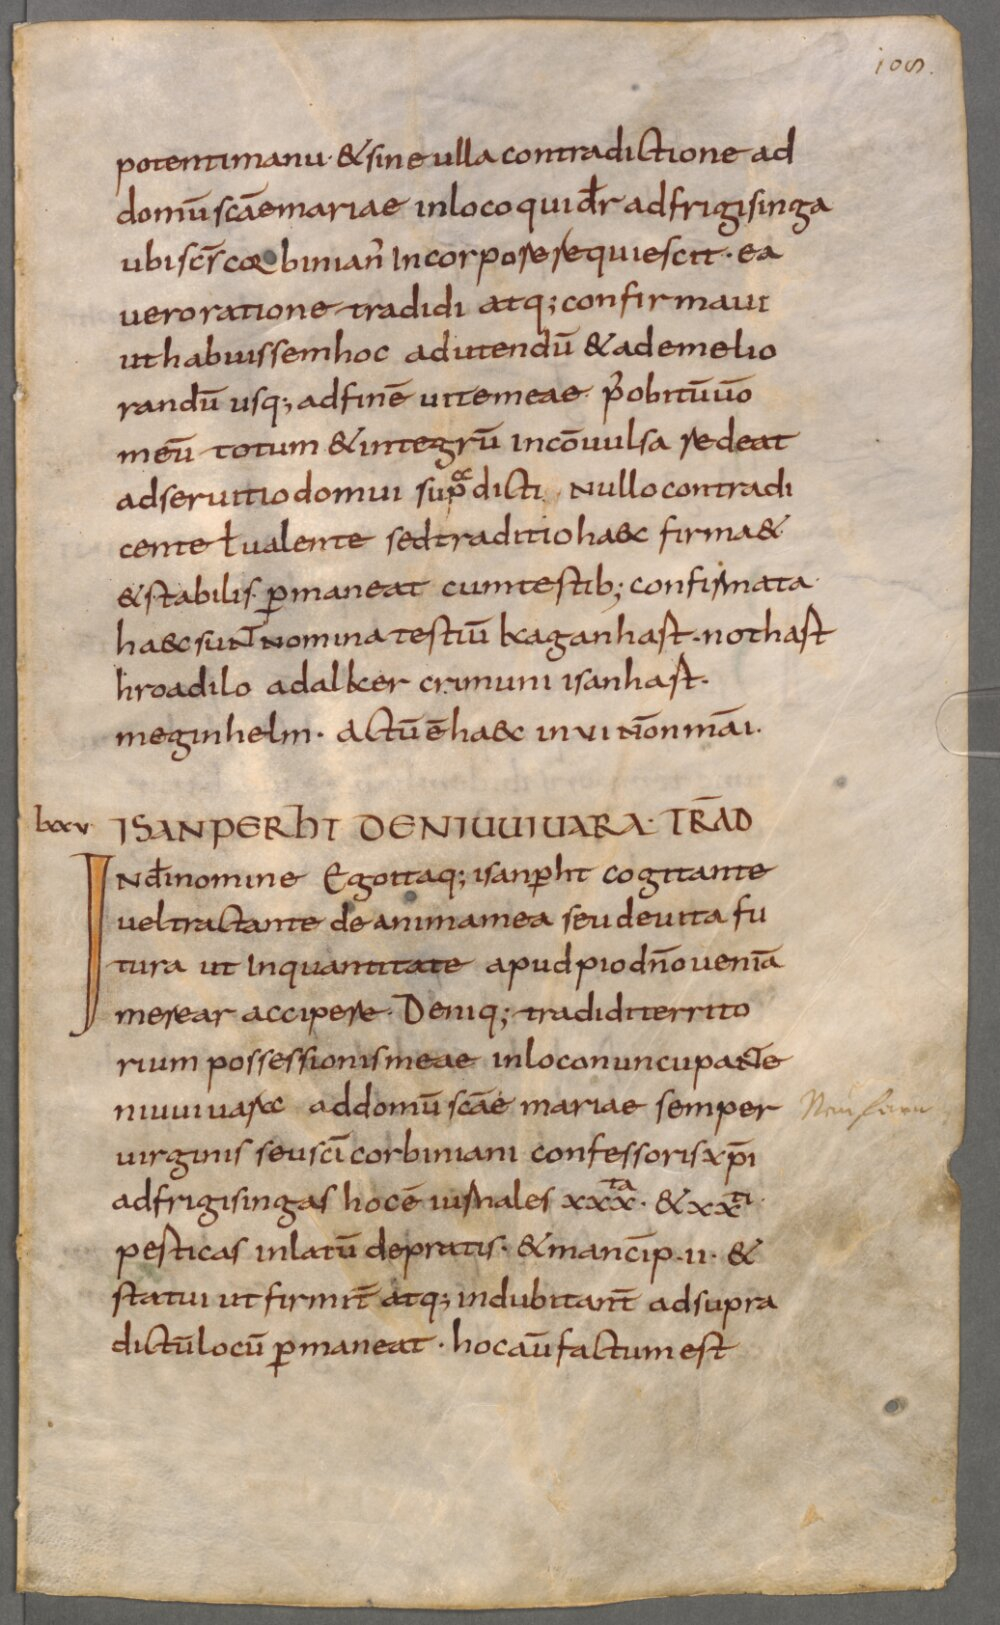 108.
potentimanu· & sine ulla contradictione ad
domū scāe mariae in loco qui dr̄ ad frigisinga
ubi scr̄ cor binian̄ In corpore requiescit· ea
vero ratione tradidi atq; confirmaui
ut habuissem hoc ad utendū & ad emelio
randū usq; ad finē uite meae· p̄ obitū ūo
meū totum & integrū inconuulsa redeat
ad seruitio domui sup̄ dicti Nullo contradi
cente ł ualente sed traditio haec firma &
& stabilis p̄maneat cum testib; confirmata·
haec suNT nomina testiū kaganhast· nothast
hroadilo adalker crimuni isanhast·
meginhelm· actū ē haec in VI nōn māi·
lxxv ISANPERHT DE NIUUIUARA· TRAD̄
IN dī nomine Ego itaq; isanp̄ht cogitante
uel tractante de anima mea seu de uita fu
tura ut In quantitate apud pio dn̄o ueniā
merear accipere· Deniq; tradidi territo
rium possessionis meae in loco nuncupante
niuuiuara addomū scāe mariae semper
uirginis seu scī corbiniani confessoris xp̄i
ad frigisingas hoc ē iurnales xxx ta· & xx ti·
pesticas in latū de pratis· & mancip̄· II· &
statui ut firmit̄ atq; indubitant̄ ad supra
dictū locū p̄maneat· hoc aū factum est